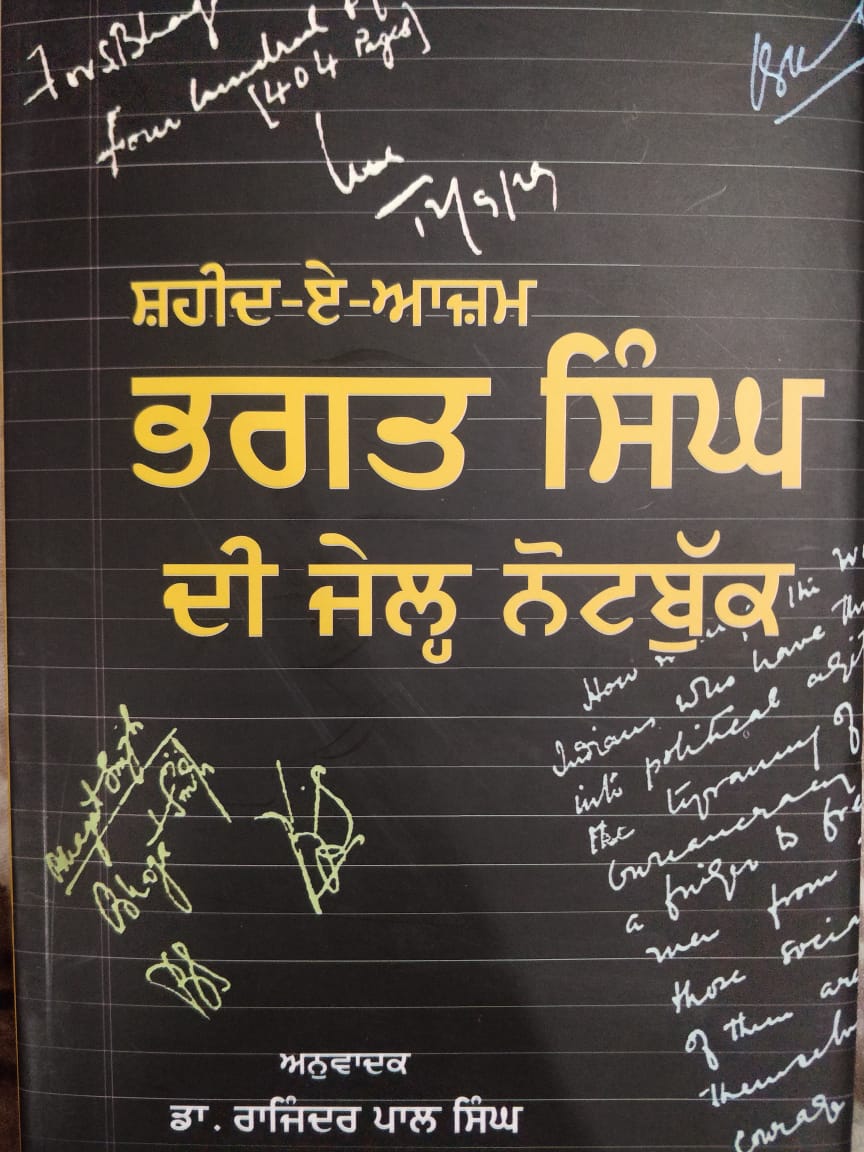 For S. Bhag
four hundred
[404 Pages]
12/9/29
ਸ਼ਹੀਦ-ਏ-ਆਜ਼ਮ
ਭਗਤ ਸਿੰਘ
ਦੀ ਜੇਲ੍ਹ ਨੋਟਬੁੱਕ
How the
Indians who have
into political
the tyranny of
bureaucracy
a finger to
men from
those
of them are
courage
Bhagat Singh
Bhagat Singh
BS
ਅਨੁਵਾਦਕ
ਡਾ. ਰਾਜਿੰਦਰ ਪਾਲ ਸਿੰਘ